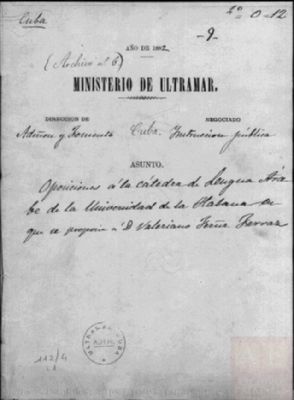 Cuba
2º 0-12
AÑO DE 1882
-9-
(Archivo al 6)
MINISTERIO DE ULTRAMAR.
DIRECCION DE
NEGOCIADO
Admon y Fomento
Cuba.
Instruccion pública
ASUNTO.
Oposiciones á la cátedra de Lengua Ára
be de la Universidad de la Habana en
que se propone á D Valeriano Ferraz
ULTRAMAR
112/4